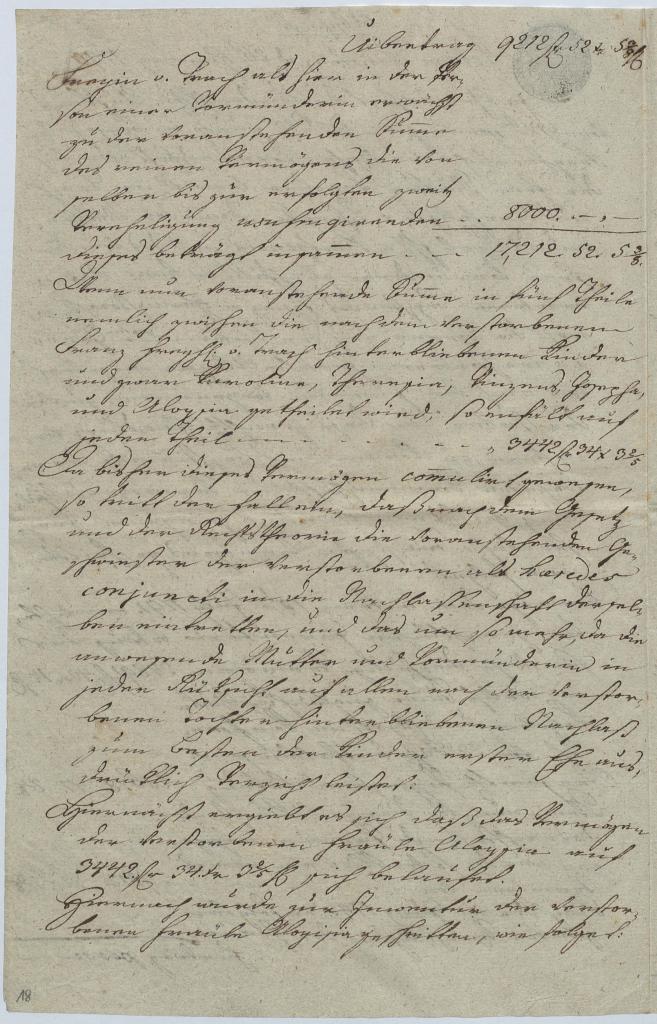 Übertrag 9212 fl 52 xr 5 3/5
Freyin v. Trach als hier in der Per-
son einer Vormünderin erwächst
zu der voranstehenden Summe
des reinen Vermögens die von
selben bis zur erfolgten zweit
Vereheligung .. 8000. – . –
dieses beträgt insammen . – . 17,212. 52. 5 3/5.
Wenn nun voranstehende Summe in fünf Theile
nemlich zwischen die nach dem verstorbenen
Franz Freyh: v. Trach hinterbliebenen Kinder
und zwar Karoline, Theresia, Vinzens, Josepha,
und Aloysia getheilet wird, so entfält auf
jeden Theil – . . . . " 3442 fl 34 x 3 2/5
Da bisher dieses Vermögen comulirt gewesen,
so tritt der Fall ein, daß nach dem Gesetz
und der Rechtstheorie die voranstehenden Ge-
schwister der verstorbenen als haeredes
conjuncti in die Nachlassenschaft dersel-
ben eintretten, und das um so mehr, da die
anwesende Mutter und Vormünderin in
jeder Rüksicht auf allen nach der verstor-
benen Tochter hinterbliebenen Nachlaß
zum Besten der Kinder erster Ehe aus-
drücklich Verzicht leistet.
Hiernächst ergiebt es sich daß das Vermögen
der verstorbenen Fräule Aloysia auf
3442 fl 34 xr 3 2/5 sich belaufet.
Hiernach wurde zur Inventur der verstor-
benen Fräule Aloisia geschritten, wie folget:
18